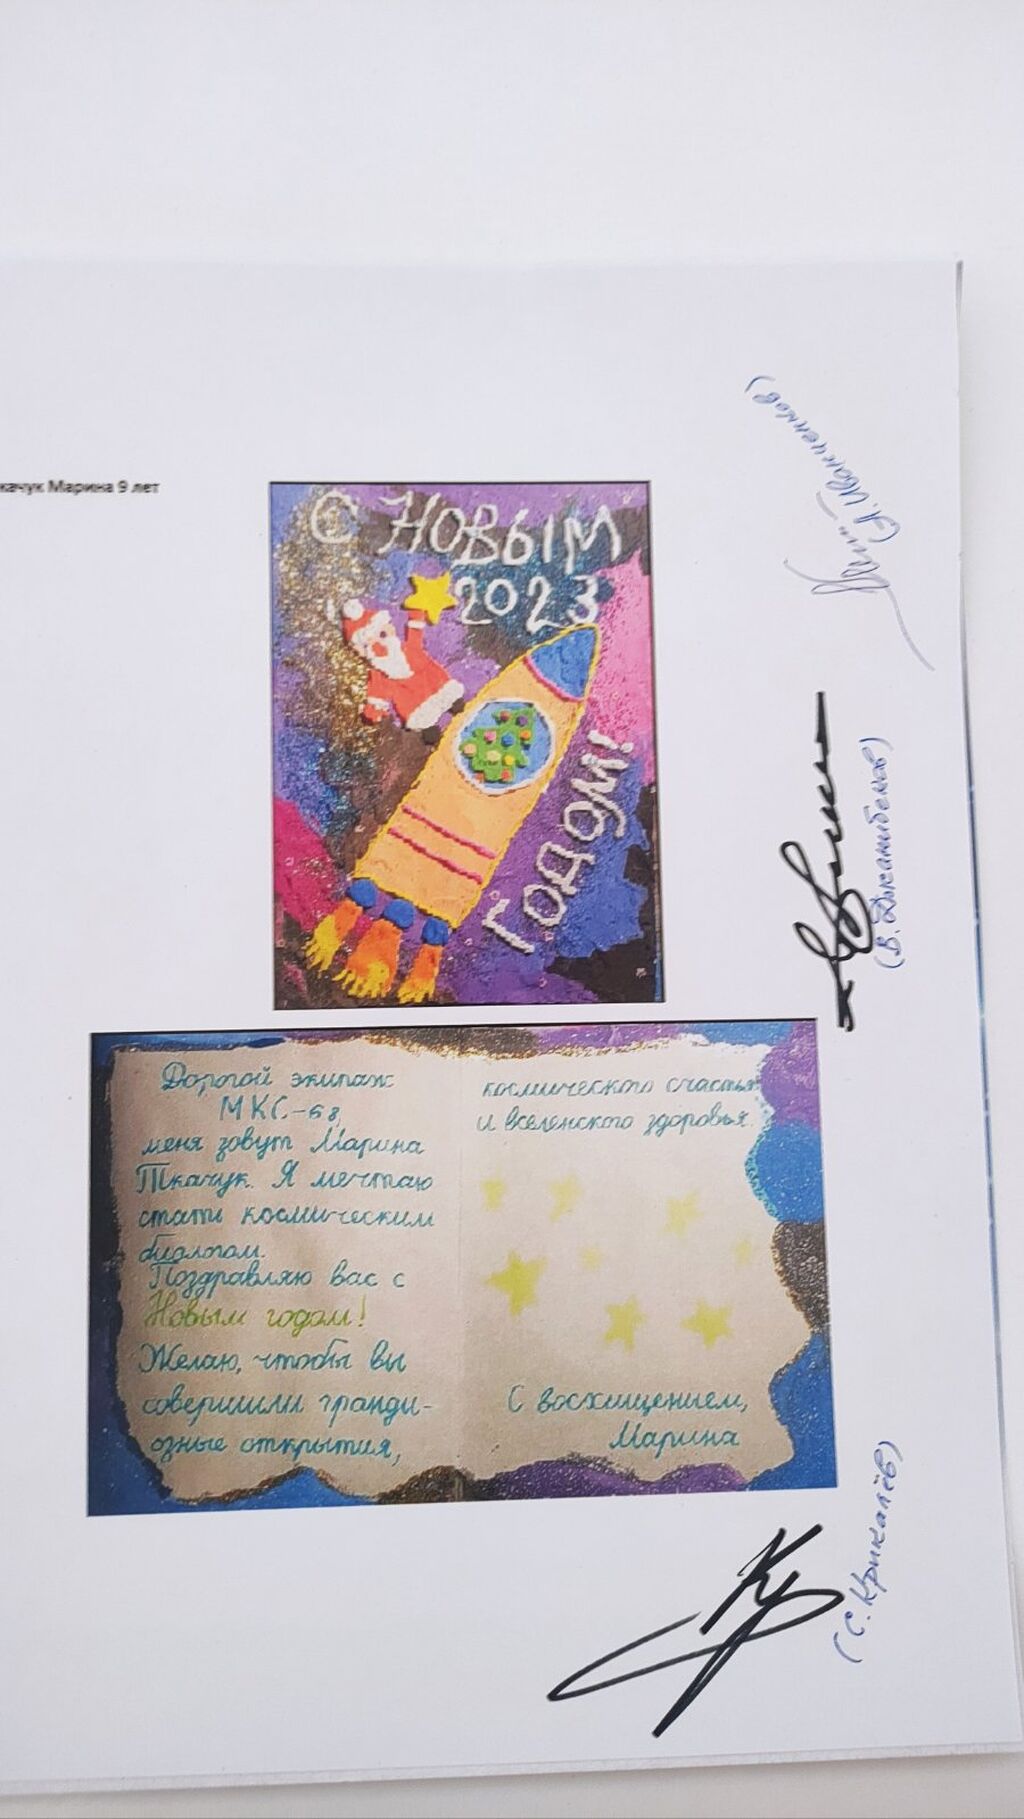 качук Марина 9 лет
С НОВЫМ
2023
ГОДОМ!
Дорогой экипаж
МКС-68,
меня зовут Марина
Ткачук. Я мечтаю
стать космическим
биологом.
Поздравляю вас с
Новым годом!
Желаю, чтобы вы
совершили гранди-
озные открытия,
космического счастья
и вселенского здоровья.
С восхищением,
Марина
(А. Иванченков)
(В. Джанибеков)
(С. Крикалёв)